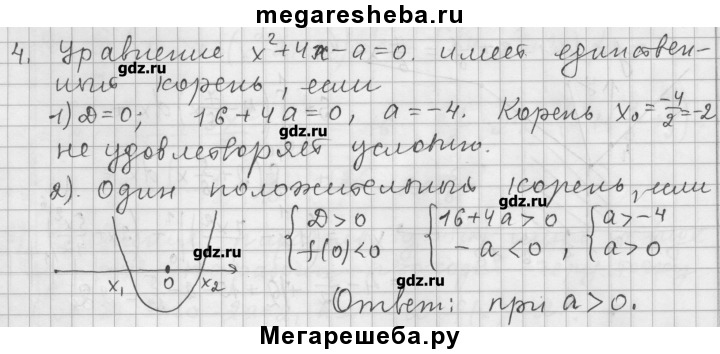 megaresheba.ru
4. Уравнение x²+4x-a=0. имеет единствен-
gdz.ru
ный корень, если
1) D=0; 16+4a=0, a=-4. Корень x₀=-4/2=-2
gdz.ru gdz.ru
не удовлетворяет условию.
2). Один положительный корень, если
gdz.ru
{D>0 {16+4a>0 {a>-4
{f(0)<0 {-a<0 , {a>0
gdz.ru
x₁ 0 x₂
gdz.ru
Ответ: при a>0.
Мегарешеба.ру